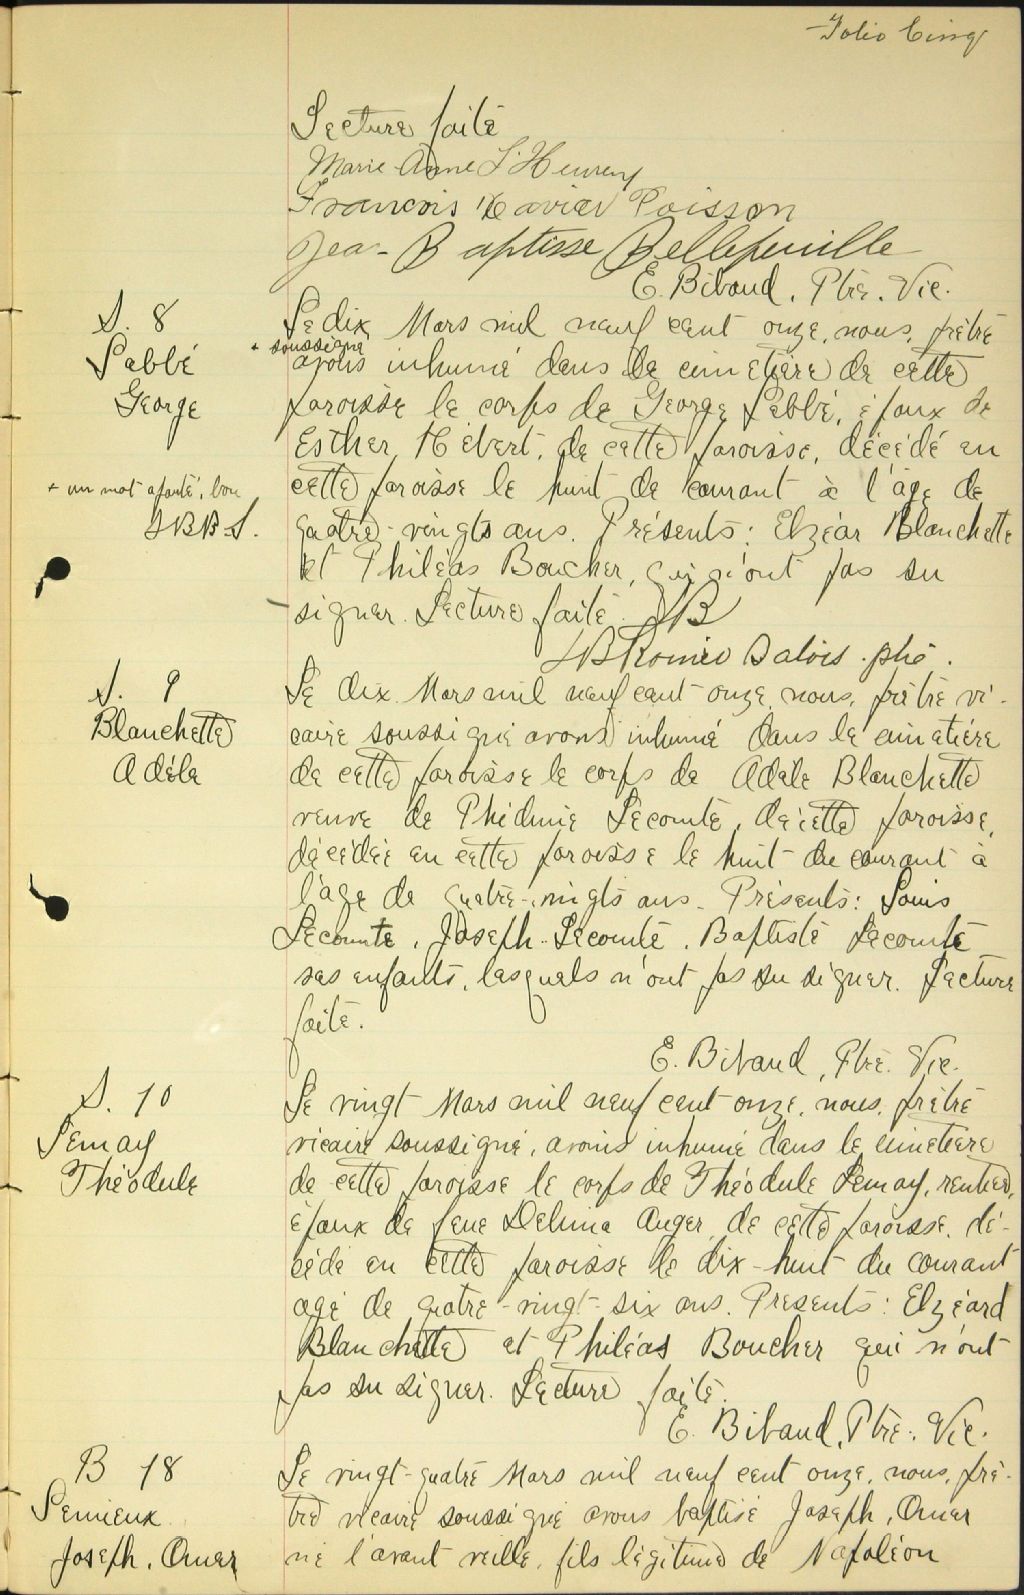 Folio Cinq
Lecture faite
Marie-Anne L'Heureux
Francois Xavier Poisson
Jean-Baptisse Bellefeuille
E. Biband, Ptre. Vic.
S. 8
Labbé
George
Le dix Mars mil neuf cent onze, nous, prêtre
+ soussigné
avons inhumé dans le cimetière de cette
paroisse le corps de George Labbé, époux de
Esther Hébert, de cette paroisse, décédé en
cette paroisse le huit de courant à l'âge de
+ un mot ajouté, bon
quatre-vingts ans. Présents: Elzéar Blanchette
et Philéas Boucher, qui n'ont pas su
signer. Lecture faite.
ptre.
S. 9
Blanchette
Adèle
Le dix Mars mil neuf cent onze, nous, prêtre vi-
caire soussigné avons inhumé dans le cimetière
de cette paroisse le corps de Adèle Blanchette
veuve de Phédime Lecomte, de cette paroisse,
décédée en cette paroisse le huit du courant à
l'âge de quatre-vingts ans. Présents: Louis
Lecomte, Joseph Lecomte, Baptiste Lecomte
ses enfants, lesquels n'ont pas su signer. Lecture
faite.
E. Biband, Ptre. Vic.
S. 10
Lemay
Théodule
Le vingt Mars mil neuf cent onze, nous, prêtre
vicaire soussigné, avons inhumé dans le cimetière
de cette paroisse le corps de Théodule Lemay, rentier,
époux de feue Delima Auger, de cette paroisse, dé-
cédé en cette paroisse le dix-huit du courant
agé de quatre-vingt-six ans. Présents: Elzéard
Blanchette et Philéas Boucher qui n'ont
pas su signer. Lecture faite.
E. Biband, Ptre. Vic.
B 18
Lemieux
Joseph, Omer
Le vingt-quatre Mars mil neuf cent onze, nous, prê-
tre vicaire soussigné avons baptisé Joseph, Omer
né l'avant veille, fils légitime de Napoléon